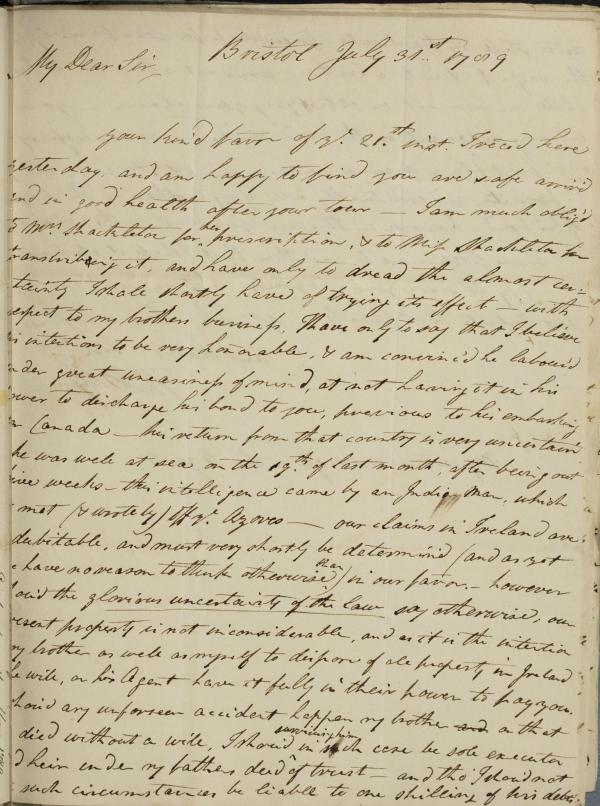 Bristol July 31.st 1789
My Dear Sir,
your kind favor of ye. 21.th inst. I reced here
yesterday. and am happy to find you are safe arriv'd
and in good health after your tour — I am much oblig'd
to Mrs. Shackleton for her prescription, & to Miss Shackleton for
transcribeing it, and have only to dread the almost cer-
tainty I shall shortly have of trying its effect — with
respect to my brothers business, I have only to say that I believe
his intentions to be very honorable, & am convinc'd he labour'd
under great uneasiness of mind, at not having it in his
power to discharge his bond to you, previous to his embarking
Canada — his return from that country is very uncertain
he was well at sea on the 19.th of last month, after being out
five weeks — this intelligence came by an India man, which
met (& wrote by) off ye. Azores — our claims in Ireland are
dubitable, and must very shortly be determin'd (and as yet
have no reason to think otherwise than) in our favor. — however
should the glorious uncertainty of the law say otherwise, our
present property is not inconsiderable, and as it is the intention
my brother as well as myself to dispose of all property in Ireland
he will, or his Agent have it fully in their power to pay you.
shou'd any unforseen accident happen my brother and or that
died without a wife, surviving him I shou'd in such case be sole executor
and heir under my fathers deed of trust — and tho' I shou'd not
such circumstances be liable to one shilling of his debts.